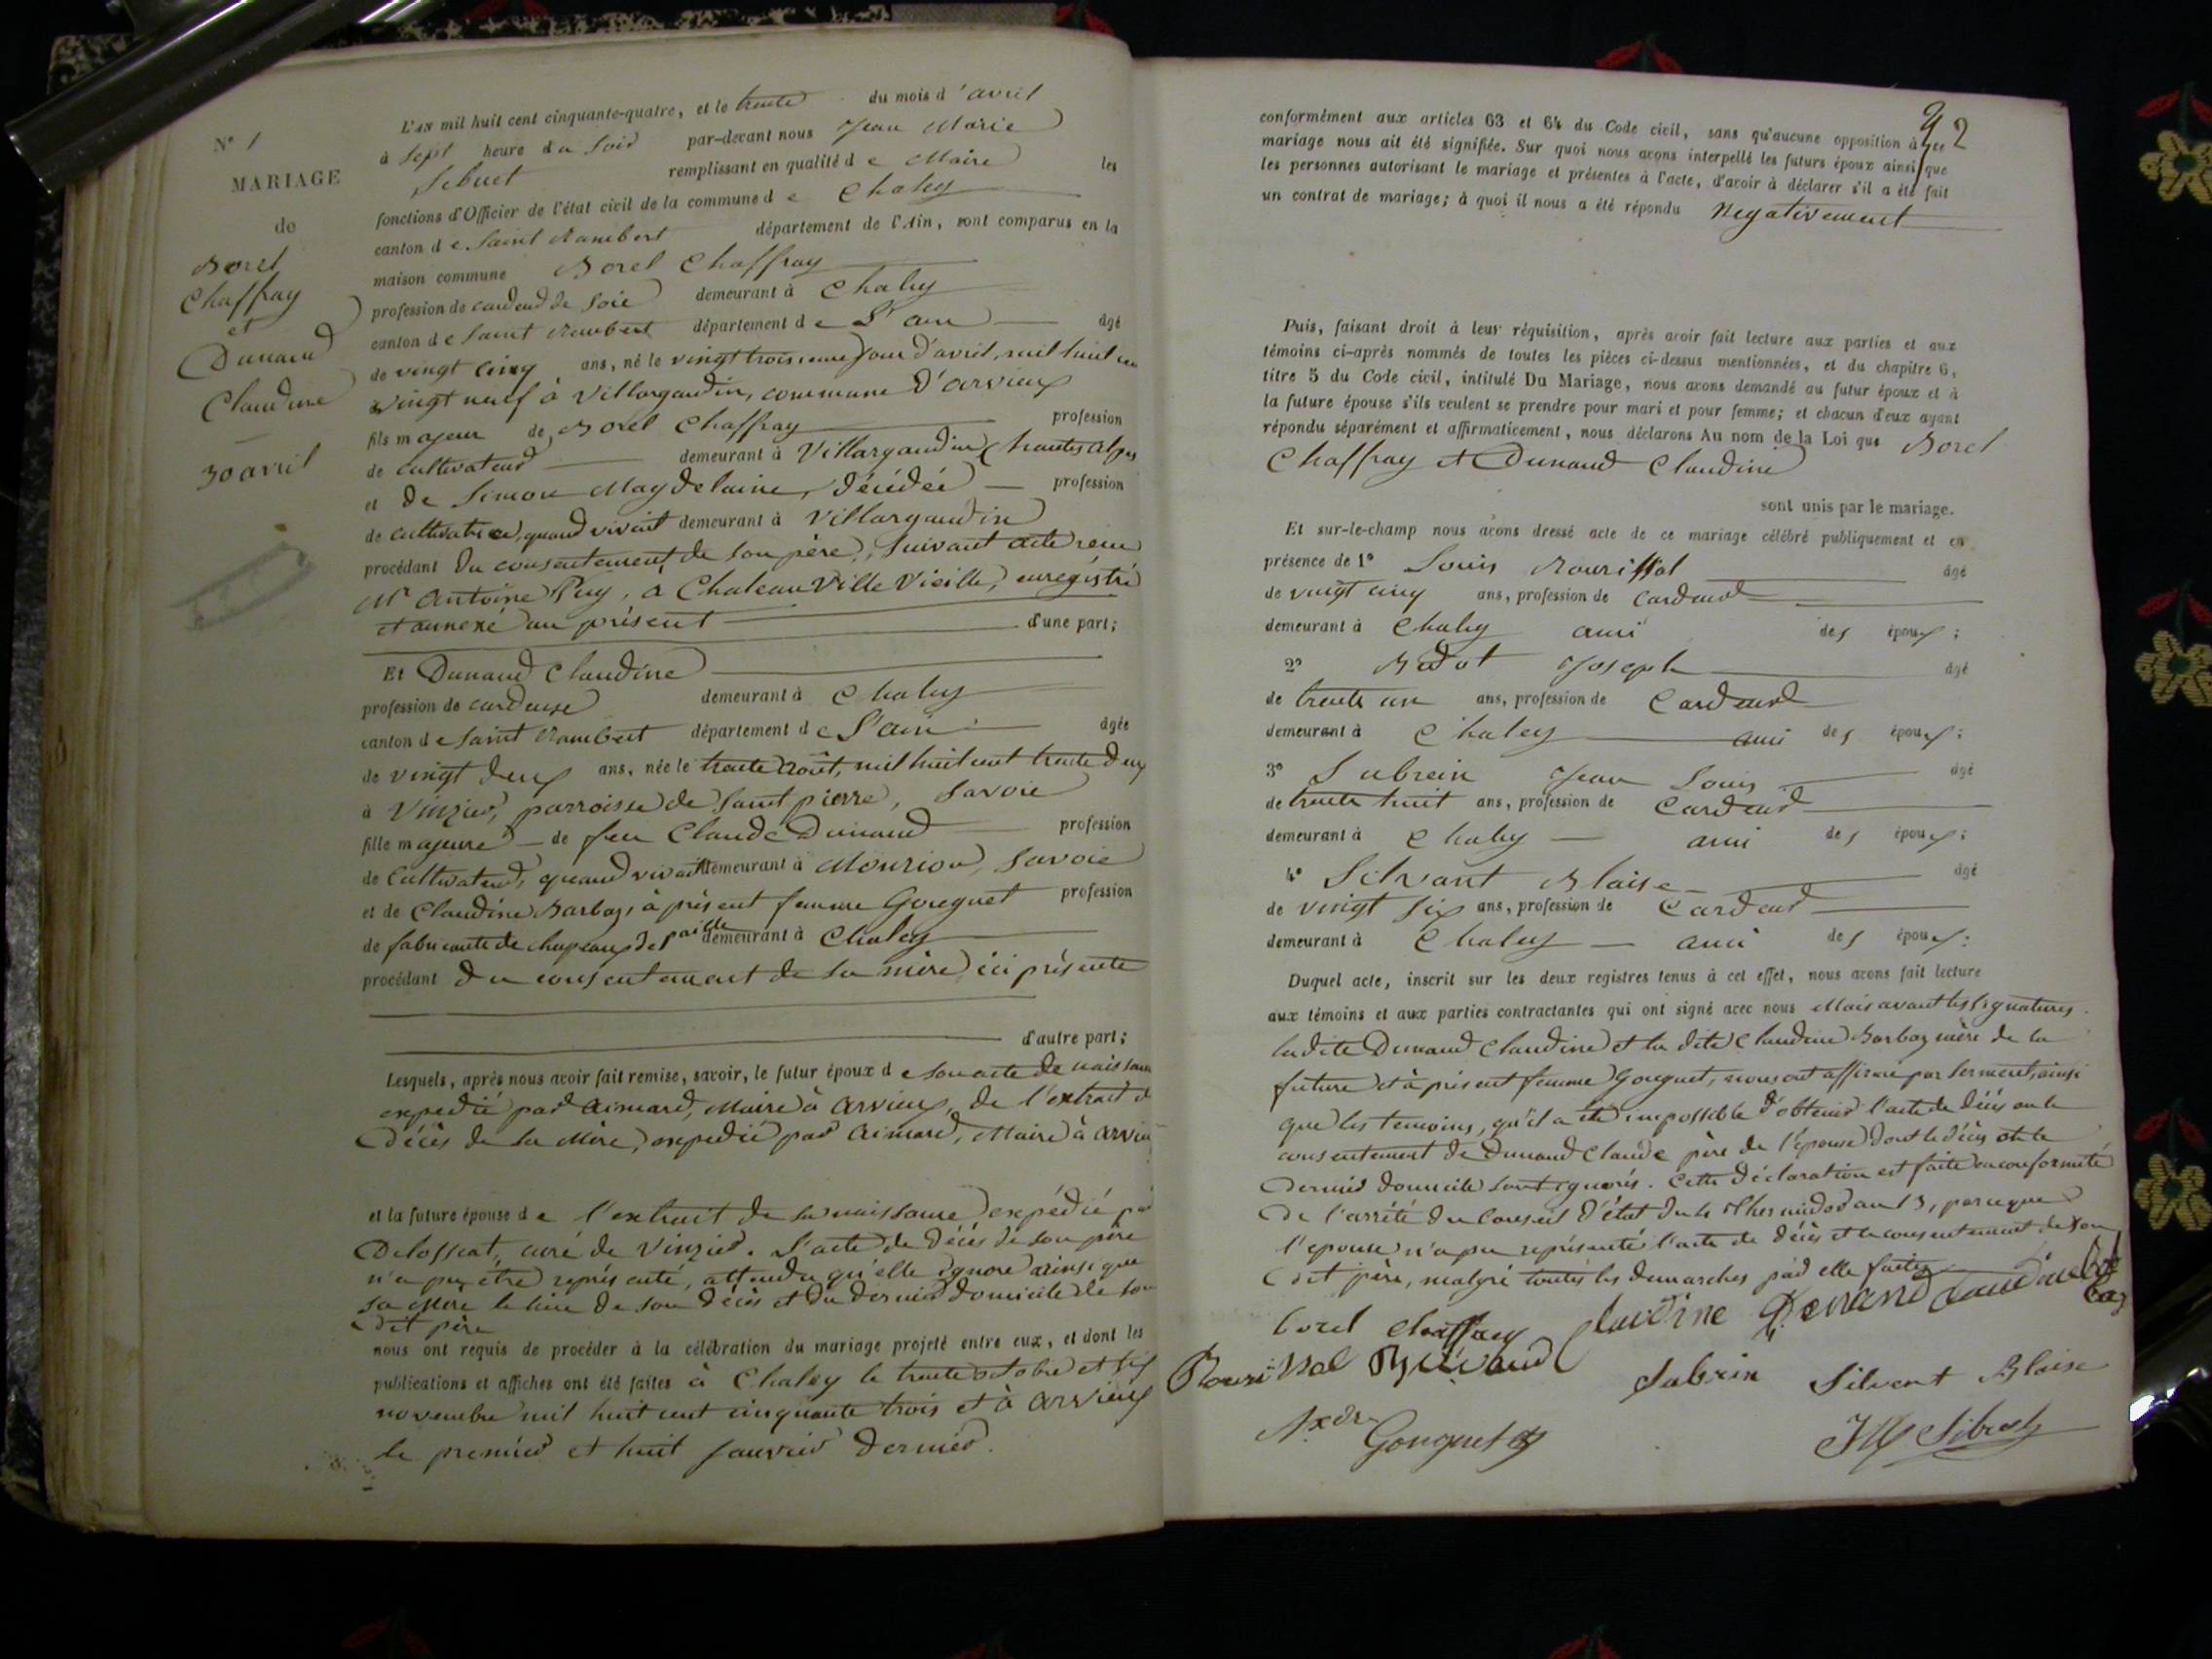 N° 1
MARIAGE
de
Borel
Chaffray
et
Dunand
Claudine
30 avril
L'AN mil huit cent cinquante-quatre, et le trente du mois d'avril
à Sept heure du Soir par-devant nous Jean Marie
Sibuet remplissant en qualité de Maire les
fonctions d'Officier de l'état civil de la commune de Chaley
canton de Saint Rambert département de l'Ain, sont comparus en la
maison commune Borel Chaffray
profession de cardeur de Soie demeurant à Chaley
canton de Saint Rambert département de L'ain âgé
de vingt cinq ans, né le vingt troisieme jour d'avril, mil huit cen
vingt neuf à Villargaudin, commune D'arvieux
fils majeur de Borel Chaffray profession
de cultivateur demeurant à Villargaudin (hautes alpes
et de Simon Magdelaine, décédée profession
de cultivatrice, quand vivait demeurant à Villargaudin
procédant du consentement de son père, suivant acte recu
Mr Antoine Puy, a Chateau Ville Vieille, enregistré
et annexé au présent d'une part;
Et Dunand Claudine
profession de cardeuse demeurant à Chaley
canton de Saint Rambert département de L'ain âgée
de vingt deux ans, née le trente août, mil huit cent trente deux
à Vinzier, parroisse de Saint pierre, Savoie
fille majeure de feu Claude Dunand profession
de Cultivateur, quand vivait demeurant à Mourion, Savoie
et de Claudine Barbaz, à présent femme Gouguet profession
de fabricante de chapeaux de Paille demeurant à Chaley
procédant du consentement de sa mère ici présente
d'autre part;
Lesquels, après nous avoir fait remise, savoir, le futur époux de son acte de naissance
expedié par Aimard, Maire à Arvieux, de l'extrait d
décès de sa Mère, expedié par Aimard, Maire à Arvieu
et la future épouse de l'extrait de sa naissance expédié pa
Delosseat, curé de Vinzier. L'acte de décès de son père
n'a pu être représenté, attendu qu'elle ignore ainsi que
sa Mère le lieu de son décès et du dernier domicile de son
dit père
nous ont requis de procéder à la célébration du mariage projeté entre eux, et dont les
publications et affiches ont été faites à Chaley le trente octobre et six
novembre mil huit cent cinquante trois et à Arvieux
le premier et huit Janvier dernier.
92
conformément aux articles 63 et 64 du Code civil, sans qu'aucune opposition à ce
mariage nous ait été signifiée. Sur quoi nous avons interpellé les futurs époux ainsi que
les personnes autorisant le mariage et présentes à l'acte, d'avoir à déclarer s'il a été fait
un contrat de mariage; à quoi il nous a été répondu Negativement
Puis, faisant droit à leur réquisition, après avoir fait lecture aux parties et aux
témoins ci-après nommés de toutes les pièces ci-dessus mentionnées, et du chapitre 6,
titre 5 du Code civil, intitulé Du Mariage, nous avons demandé au futur époux et à
la future épouse s'ils veulent se prendre pour mari et pour femme; et chacun d'eux ayant
répondu séparément et affirmativement, nous déclarons Au nom de la Loi que Borel
Chaffray et Dunand Claudine
sont unis par le mariage.
Et sur-le-champ nous avons dressé acte de ce mariage célébré publiquement et en
présence de 1° Louis Rourissol âgé
de vingt cinq ans, profession de Cardeur
demeurant à Chaley ami des époux;
2° Joseph âgé
de trente un ans, profession de Cardeur
demeurant à Chaley ami des époux;
3° Subrein Jean Louis âgé
de trente huit ans, profession de Cardeur
demeurant à Chaley ami des époux;
4° Silvant Blaise âgé
de vingt six ans, profession de Cardeur
demeurant à Chaley ami des époux:
Duquel acte, inscrit sur les deux registres tenus à cet effet, nous avons fait lecture
aux témoins et aux parties contractantes qui ont signé avec nous Mais avant les signatures.
ladite Dunand Claudine et la dite Claudine Barbaz mère de la
future et à présent femme Gouguet, nous ont affirmé par serment, ainsi
que les temoins, qu'il a été impossible d'obtenir l'acte de décès ou le
consentement de Dunand Claude père de l'épouse dont le décès et le
dernier domicile sont ignorés. Cette déclaration est faite en conformité
de l'arrêté du Conseil d'état du 4 Thermidor an 13, parceque
l'epouse n'a pu représenté l'acte de décès et le consentement de son
dit père, malgré toutes les demarches par elle faites
borel chaffrey Claudine Dunand Claudine bar
baz
Rourissol Subrin Silvent Blaise
Gouguet JM Sibuet